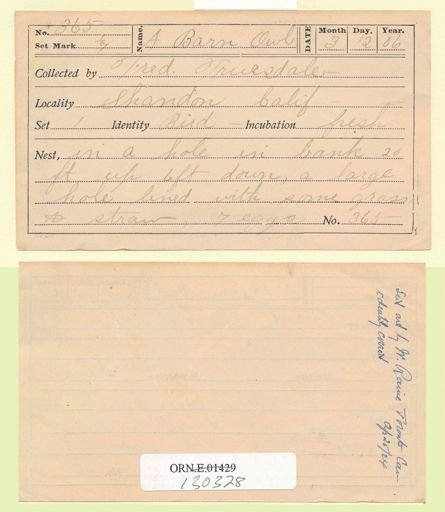 No. 365
Set Mark 1/7
Name. A Barn Owl
DATE Month Day. Year.
3 12 06
Collected by Fred. Truesdale
Locality Shandon Calif
Set 1 Identity Bird Incubation fresh
Nest, in a hole in bank 20
ft up 4ft down, a large
hole lined with some grass
& straw, 7 eggs No. 365
by W. Raine Toronto Can
identity correct
ORN.E.01429
130328